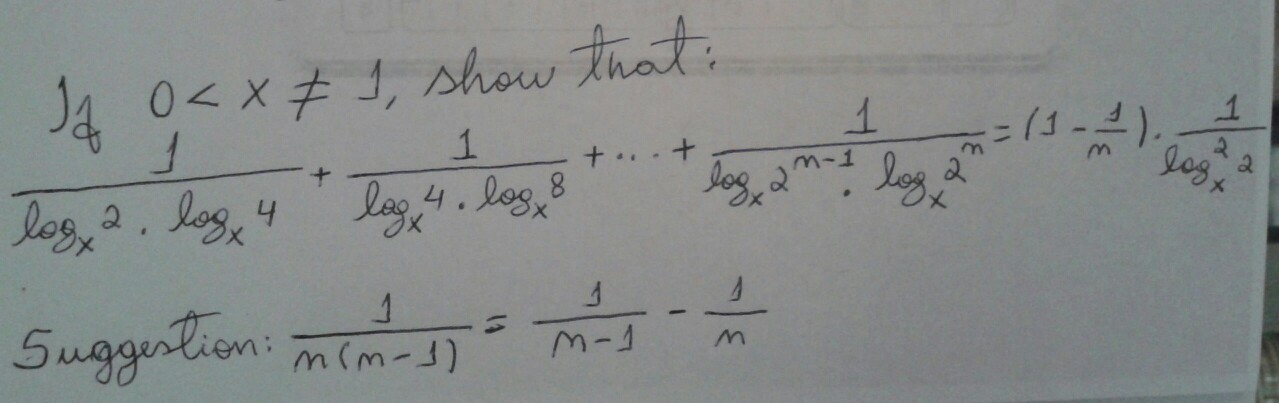 If 0 < x ≠ 1, show that:
1/(log_x 2 . log_x 4) + 1/(log_x 4 . log_x 8) + ... + 1/(log_x 2^(n-1) . log_x 2^n) = (1 - 1/n) . 1/(log_x^2 2)
Suggestion: 1/(n(n-1)) = 1/(n-1) - 1/n